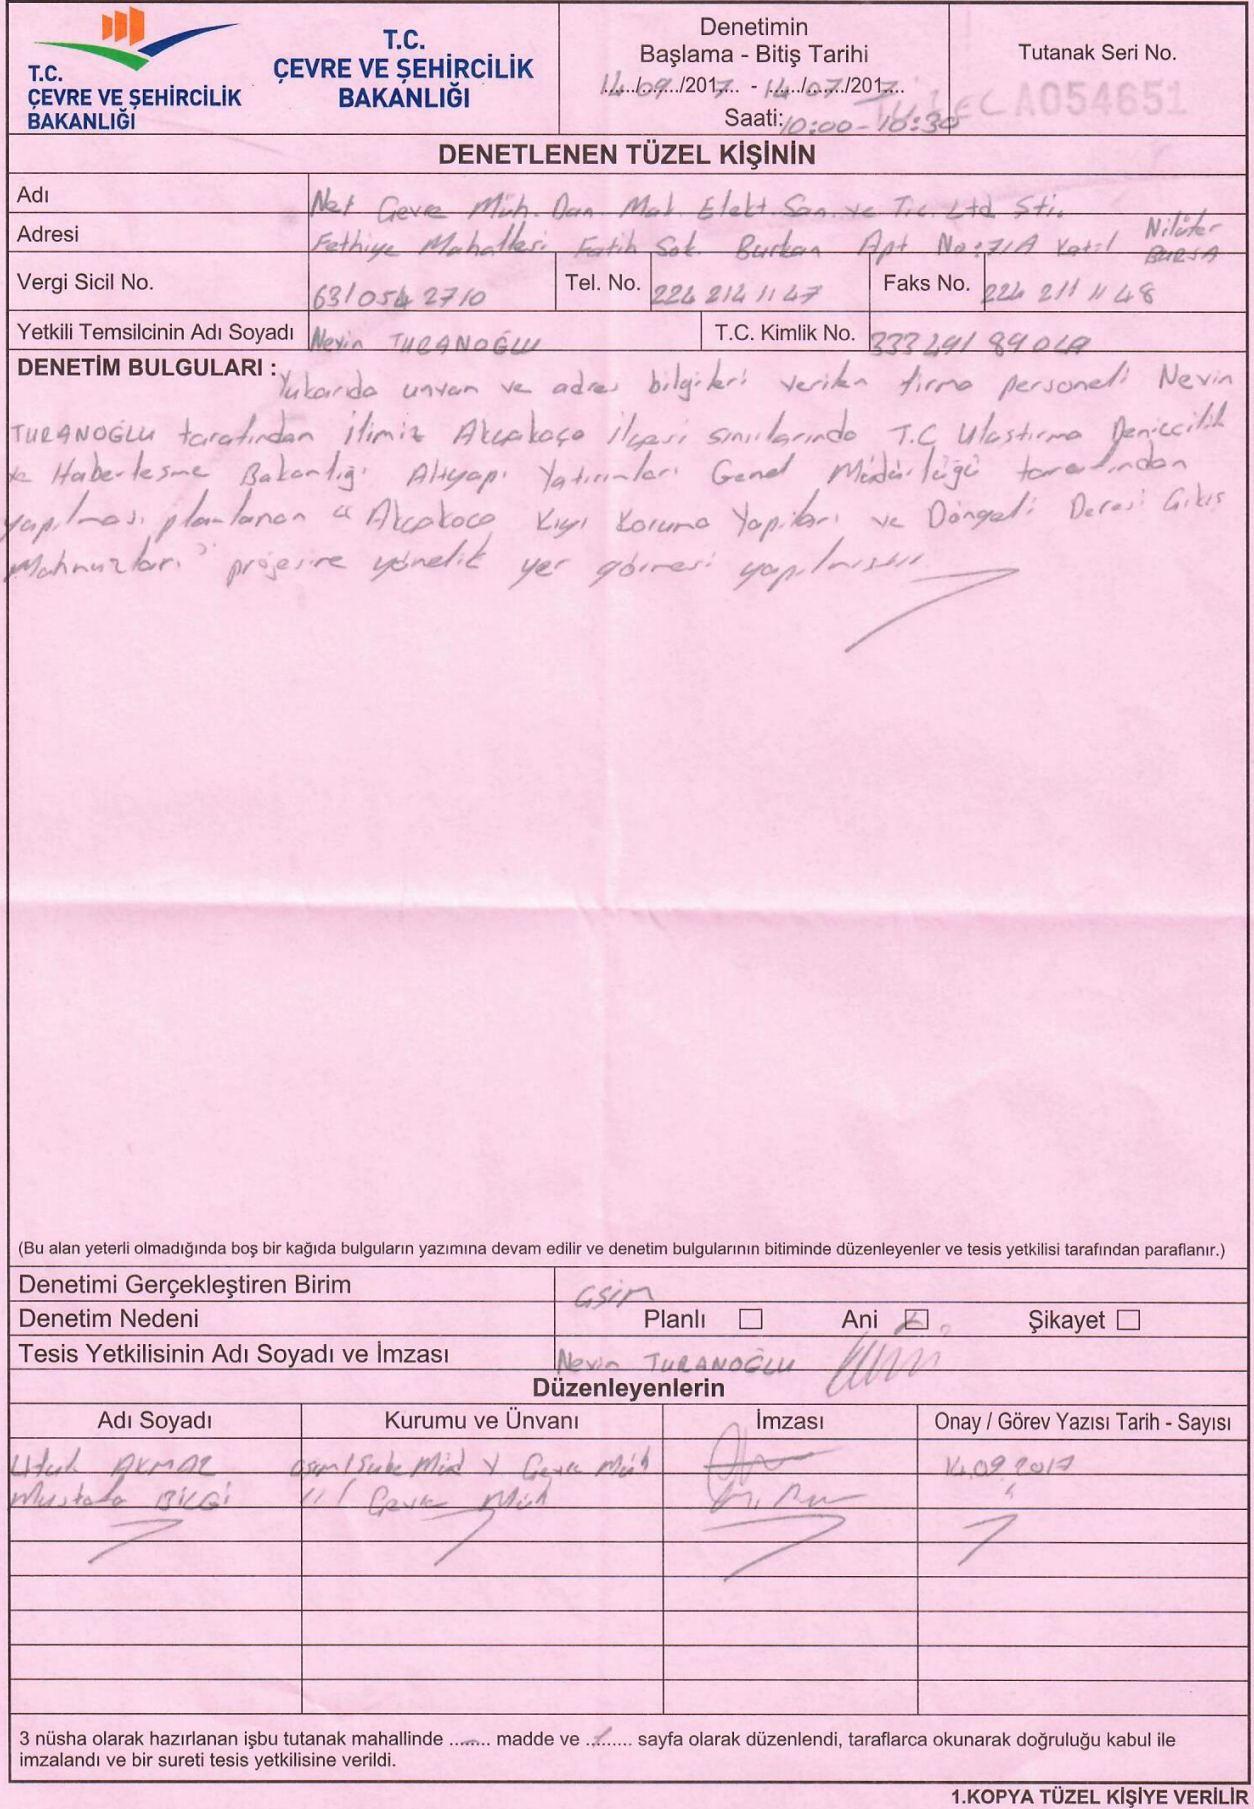 T.C.
ÇEVRE VE ŞEHİRCİLİK
BAKANLIĞI
T.C.
ÇEVRE VE ŞEHİRCİLİK
BAKANLIĞI
Denetimin
Başlama - Bitiş Tarihi
14/09/2017 - 14/07/2017
Saati: 10:00-10:30
Tutanak Seri No.
A054651
DENETLENEN TÜZEL KİŞİNİN
Adı Net Çevre Müh. Dan. Mak. Elekt. San. ve Tic. Ltd Şti.
Adresi Fethiye Mahallesi Fatih Sok. Burkan Apt No:71A Nilüfer
BURSA
Vergi Sicil No. 631 054 2710 Tel. No. 224 214 11 47 Faks No. 224 211 11 48
Yetkili Temsilcinin Adı Soyadı Nevin TURANOĞLU T.C. Kimlik No.
DENETİM BULGULARI : Yukarıda unvan ve adres bilgileri verilen firma personeli Nevin
TURANOĞLU tarafından ilimiz Akçakoca ilçesi sınırlarında T.C Ulaştırma Denizcilik
ve Haberleşme Bakanlığı Altyapı Yatırımları Genel Müdürlüğü tarafından
yapılması planlanan "Akçakoca Kıyı Koruma Yapıları ve Döngelli Deresi Çıkış
Mahmuzları" projesine yönelik yer görmesi yapılmıştır
(Bu alan yeterli olmadığında boş bir kağıda bulguların yazımına devam edilir ve denetim bulgularının bitiminde düzenleyenler ve tesis yetkilisi tarafından paraflanır.)
Denetimi Gerçekleştiren Birim ÇŞİM
Denetim Nedeni Planlı Ani Şikayet
Tesis Yetkilisinin Adı Soyadı ve İmzası Nevin TURANOĞLU
Düzenleyenlerin
Adı Soyadı Kurumu ve Ünvanı İmzası Onay / Görev Yazısı Tarih - Sayısı
Ufuk AKMAZ ÇŞİM/Şube Müd V Çevre Müh 14.09.2017
Mustafa BİLGİ 11/ Çevre Müh "
3 nüsha olarak hazırlanan işbu tutanak mahallinde ........ madde ve ..1...... sayfa olarak düzenlendi, taraflarca okunarak doğruluğu kabul ile
imzalandı ve bir sureti tesis yetkilisine verildi.
1.KOPYA TÜZEL KİŞİYE VERİLİR